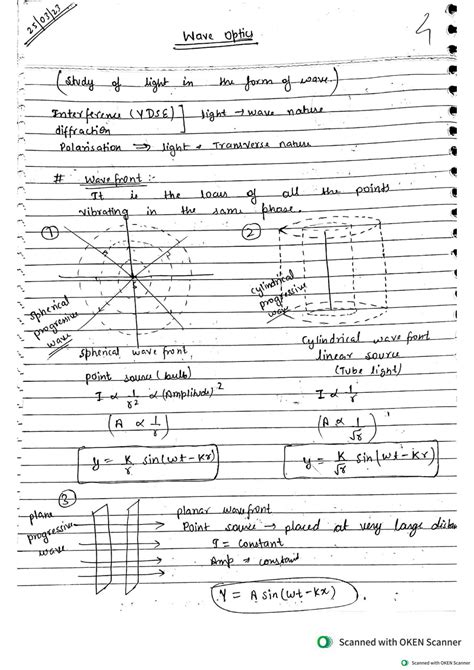 25/03/23
Wave Optics
4
(Study of light in the form of wave.)
Interference (YDSE) ] light → wave nature
diffraction
Polarisation ⟹ light → Transverse nature
# Wavefront :-
It is the locus of all the points
vibrating in the same phase.
①
spherical progressive wave
spherical wave front
point source (bulb)
I ∝ 1/r² ∝ (Amplitude)²
(A ∝ 1/r)
y = K/r sin(wt - Kr)
②
cylindrical progressive wave
Cylindrical wave front
linear source
(Tube light)
I ∝ 1/r
(A ∝ 1/√r)
y = K/√r sin(wt - Kr)
③
plane progressive wave
planar wavefront
Point source → placed at very large distan
I = constant
Amp = constant
Y = A sin(wt - kx)
Scanned with OKEN Scanner
Scanned with OKEN Scanner